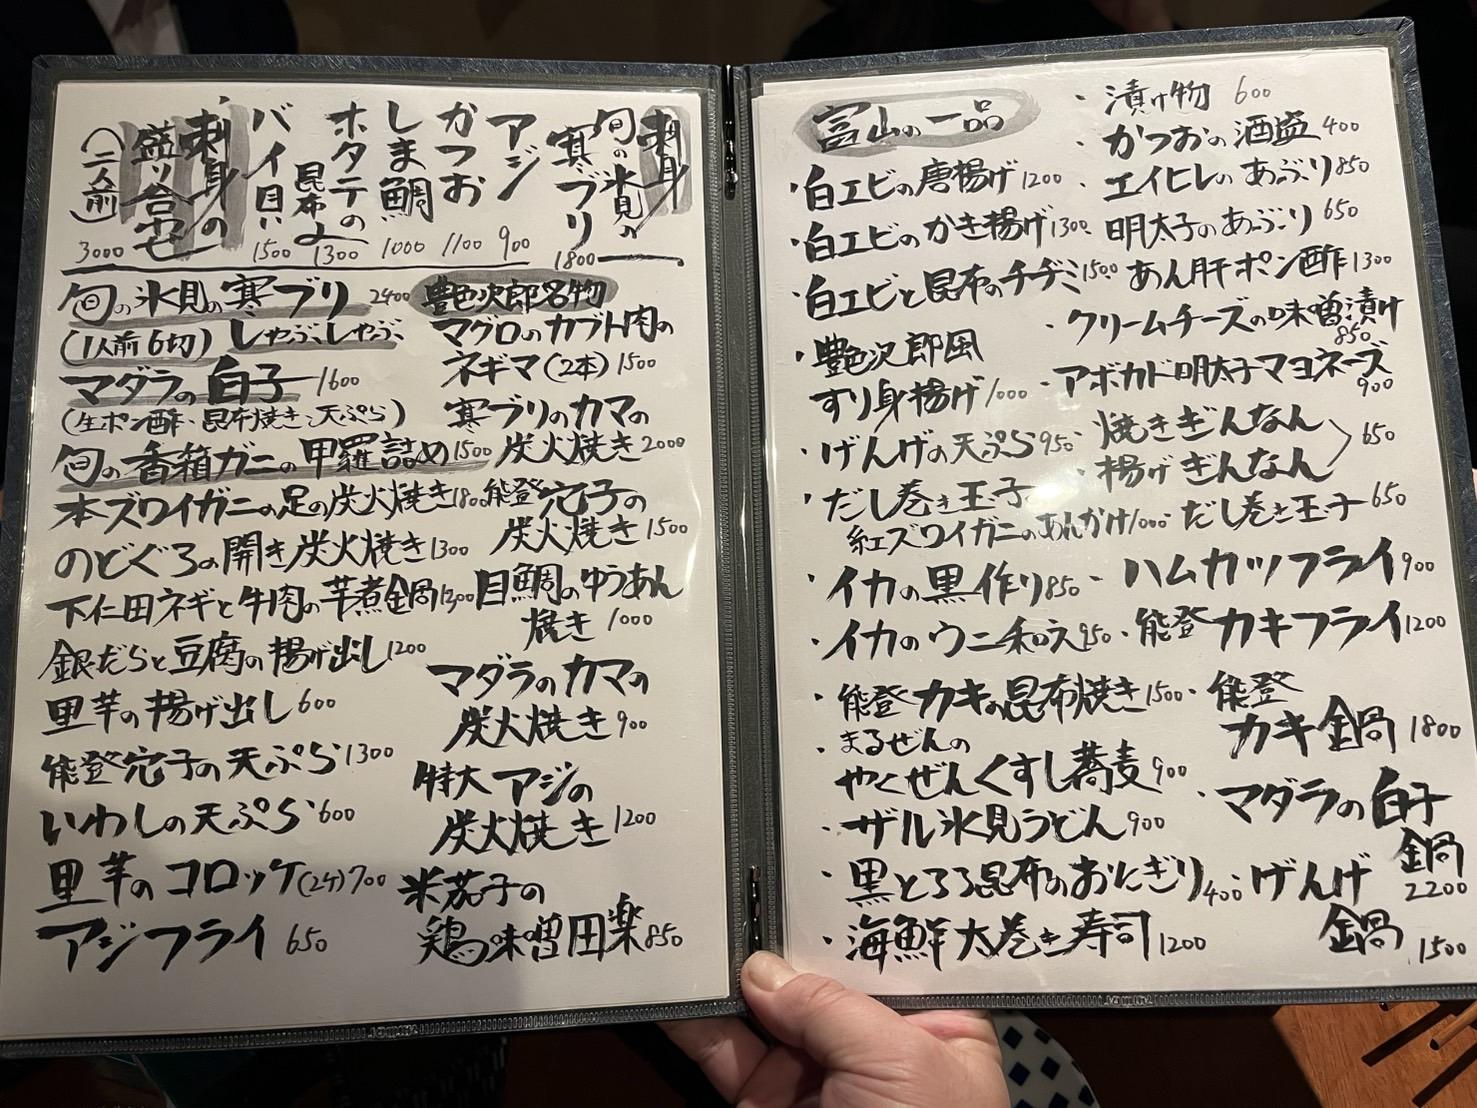 刺身
旬の氷見の
寒ブリ 1800
アジ 900
かつお 1100
しま鯛 1000
ホタテの
昆布〆 1300
バイ貝 1500
刺身の
盛り合わせ
(二人前) 3000
旬の氷見の寒ブリ 2400
(1人前6切) しゃぶしゃぶ
マダラの白子 1600
(生ポン酢・昆布焼き・天ぷら)
旬の香箱ガニの甲羅詰め 1500
本ズワイガニの足の炭火焼き 1800
のどぐろの開き炭火焼き 1300
下仁田ネギと牛肉の芋煮鍋 1300
銀だらと豆腐の揚げ出し 1200
里芋の揚げ出し 600
能登穴子の天ぷら 1300
いわしの天ぷら 600
里芋のコロッケ(2ケ) 700
アジフライ 650
艶次郎名物
マグロのカブト肉の
ネギマ(2本) 1500
寒ブリのカマの
炭火焼き 2000
能登穴子の
炭火焼き 1500
目鯛のゆうあん
焼き 1000
マダラのカマの
炭火焼き 900
特大アジの
炭火焼き 1200
米茄子の
鶏味噌田楽 850
富山の一品
・白エビの唐揚げ 1200
・白エビのかき揚げ 1300
・白エビと昆布のチヂミ 1500
・艶次郎風
すり身揚げ 1000
・げんげの天ぷら 950
・だし巻き玉子
紅ズワイガニのあんかけ 1000
・イカの黒作り 850
・イカのウニ和え 950
・能登カキの昆布焼き 1500
・まるぜんの
やくぜんくすし蕎麦 900
・ザル氷見うどん 900
・黒とろろ昆布のおにぎり 400
・海鮮大巻き寿司 1200
・漬け物 600
・かつおの酒盗 400
・エイヒレのあぶり 850
明太子のあぶり 650
あん肝ポン酢 1300
・クリームチーズの味噌漬け
850
・アボカド明太子マヨネーズ
900
・焼きぎんなん
・揚げぎんなん 650
・だし巻き玉子 650
・ハムカツフライ 900
・能登カキフライ 1200
・能登
カキ鍋 1800
・マダラの白子
鍋
2200
・げんげ
鍋 1500